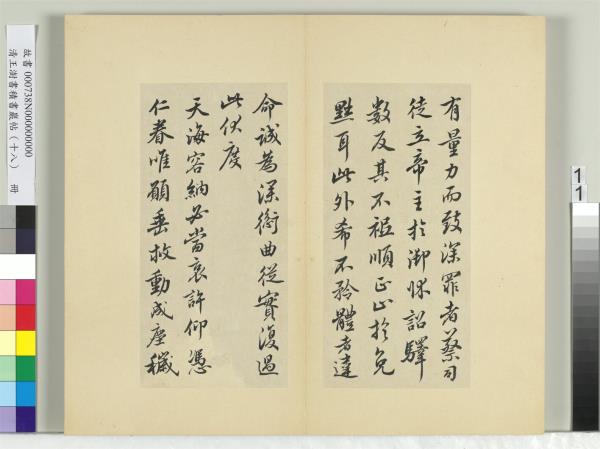 有量力而致深罪者蔡司
徒立帝主於御牀詔驛
數反其不祗順正止於免
黜耳此外希不矜體者違
命誠為深銜曲從實復過
此伏度
天海容納必當哀許仰憑
仁眷唯願垂救動成塵穢
故書 000738N000000000
清王澍書積書巖帖(十八) 冊
11